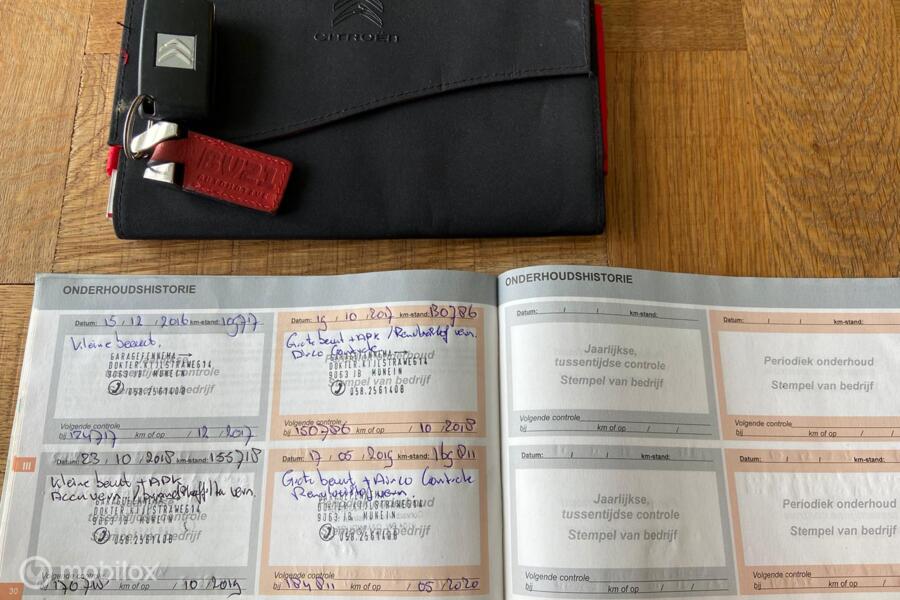 CITROËN
BU21
AUTOMOTIVE
ONDERHOUDSHISTORIE
Datum: 15, 12, 2016 km-stand:
Kleine beurt.
GARAGE FENNEMA
DOKTER.KIJLSTRAWEG14
9063 JB MUNEIN
058.2561408
Stempel van bedrijf
Volgende controle
bij 124717 km of op / 12 / 2017
Datum: 19, 10, 2017 km-stand: 130786
Grote beurt + APK / Remvloeistof vern.
Airco Controle
GARAGE FENNEMA
DOKTER.KIJLSTRAWEG14
9063 JB MUNEIN
058.2561408
Stempel van bedrijf
Volgende controle
bij 150786 km of op / 10 / 2018
III
Datum: 23, 10, 2018 km-stand: 155718
Kleine beurt + APK
GARAGE FENNEMA
DOKTER.KIJLSTRAWEG14
9063 JB MUNEIN
058.2561408
Volgende controle
km of op / 10 / 2019
Datum: 17, 05, 2019 km-stand:
Grote beurt + Airco Controle
Remvloeistof vern.
GARAGE FENNEMA
DOKTER.KIJLSTRAWEG14
9063 JB MUNEIN
058.2561408
Volgende controle
bij 184811 km of op / 05 / 2020
30
ONDERHOUDSHISTORIE
Datum: / / km-stand:
Jaarlijkse,
tussentijdse controle
Stempel van bedrijf
Volgende controle
bij km of op / /
Datum: / / km-stand:
Periodiek onderhoud
Stempel van bedrijf
Volgende controle
bij km of op /
Datum: / / km-stand:
Jaarlijkse,
tussentijdse controle
Stempel van bedrijf
Volgende controle
bij km of op / /
Datum: / / km-stand:
Periodiek onderhoud
Stempel van bedrijf
Volgende controle
bij km of op /
mobilox